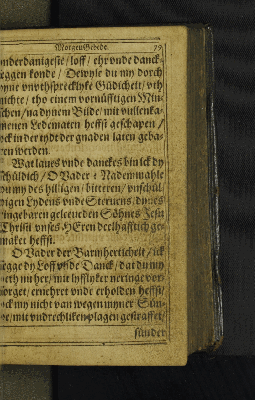 MorgenGebede. 79
underdanigeste / loff / ehr unde danck-
seggen konde / Dewyle du my dorch
dyne unuthsprecklyke Güdicheit / uth
nichte / tho einem vornüfftigen Min-
schen / na dynem Bilde / mit vullenka-
menen Ledematen heffst geschapen /
ock in der tydt der gnaden laten geba-
ren werden.
Wat laues unde danckes bin ick dy
schüldich / O Vader / Nademmahle
du my des hilligen / bitteren / unschül-
digen Lydens unde Steruens / dynes
ingebaren geleueden Söhnes Jesu
Christi unses HEren deelhafftich ge-
maket heffst.
O Vader der Barmherticheit / ick
segge dy Loff unde Danck / dat du my
beth nu her / mit lyfflyker neringe vor-
sorget / ernehret unde erholden heffst /
ock my nicht van wegen myner Sün-
de / mit undrechliken plagen gestraffet /
sünder